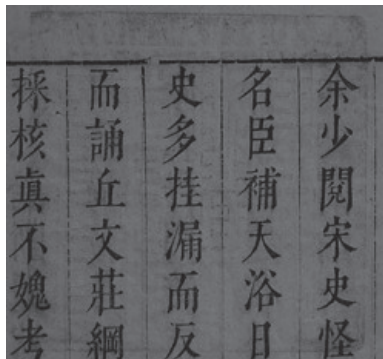 余少閱宋史怪
名臣補天浴日
史多挂漏而反
而誦丘文莊綱
採核真不媿考